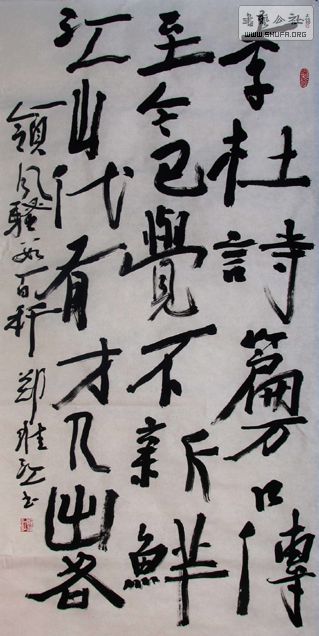 書藝公社
WWW.SHUFA.ORG
李杜詩篇万口傳
至今已覺不新鮮
江山代有才人出各
領风騷数百年 鄭江书